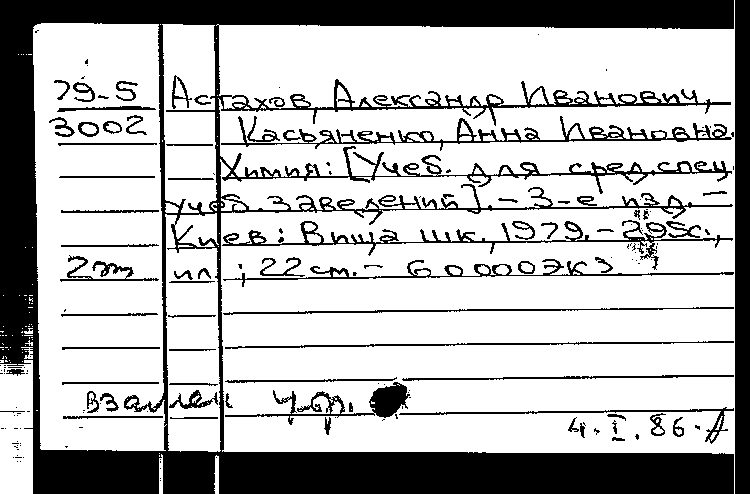 79-5 Астахов, Александр Иванович,
3002 Касьяненко, Анна Ивановна.
Химия: [Учеб. для сред. спец.
учеб. заведений]. – 3-е изд. –
Киев: Вища шк., 1979. – 295с.,
2эт ил.; 22 см. – 60000 экз
взамен
4.I.86.